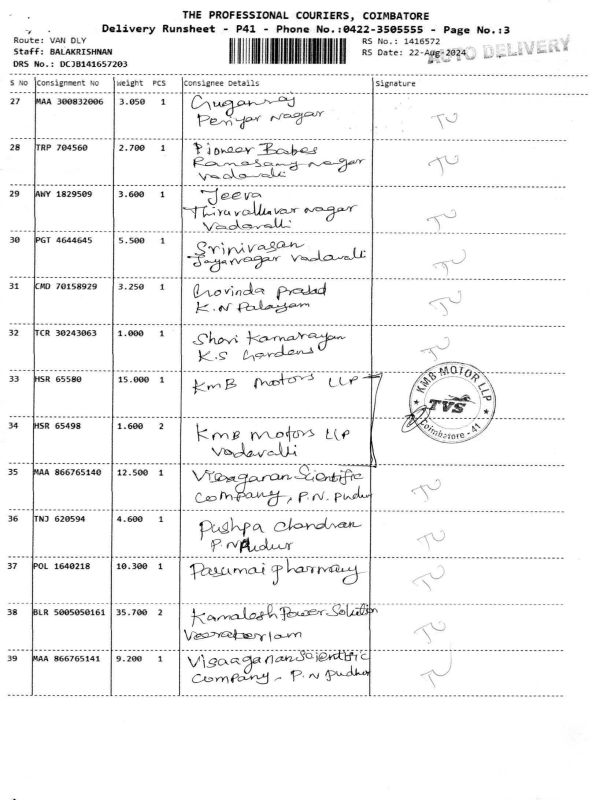 THE PROFESSIONAL COURIERS, COIMBATORE
Delivery Runsheet - P41 - Phone No.:0422-3505555 - Page No.:3
Route: VAN DLY
RS No.: 1416572
Staff: BALAKRISHNAN
RS Date: 22-Aug-2024
AUTO DELIVERY
DRS No.: DCJB141657203
S No Consignment No Weight PCS Consignee Details Signature
27 MAA 300832006 3.050 1 Guganraj
Periyar Nagar
TU
28 TRP 704560 2.700 1 Pioneer Babes
Ramasamy nagar
Vadavalli
TU
29 AWY 1829509 3.600 1 Jeeva
Thiruvalluvar nagar
Vadavalli
TU
30 PGT 4644645 5.500 1 Srinivasan
Jayanagar Vadavalli
TU
31 CMD 70158929 3.250 1 Govinda Prasad
K.N Palayam
TU
32 TCR 30243063 1.000 1 Shari Kamarayan
K.S Gardens
TU
33 HSR 65580 15.000 1 KMB Motors LLP
KMB MOTOR LLP
TVS
Coimbatore - 41
34 HSR 65498 1.600 2 KMB Motors LLP
Vadavalli
35 MAA 866765140 12.500 1 Visagaran Scientific
Company, P.N. Pudur
TU
36 TNJ 620594 4.600 1 Pushpa Chandran
P.N Pudur
TU
37 POL 1640218 10.300 1 Pasumai pharmacy
TU
38 BLR 5005050161 35.700 2 Kamalesh Power Solution
Veerakerlam
TU
39 MAA 866765141 9.200 1 Visaaganan Scientific
Company - P.N Pudhur
TU